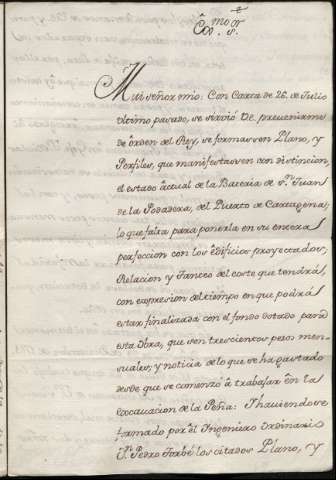 Exc.mo S.or
Mui señor mio: Con Carta de 26. de Julio
ultimo pasado, se sirvió VE. prevenirme
de órden del Rey, se formassen Plano, y
Perfiles, que manifestassen con distincion,
el estado áctual de la Bateria de S.n Juan
de la Podadera, del Puerto de Cartagena;
lo que falta para ponerla en su entera
perfeccion con los édificios proyectados,
Relacion y Tanteo del coste que tendrá,
con expresion del tiempo en que podrá
estar finalizada con el fondo dotado para
esta obra, que son trescientos pesos men-
suales; y noticia de lo que se ha gastado
desde que se comenzó a trabajar én la
excavacion de la Peña: I haviendose
formado por él Ingeniero Ordinario
D.n Pedro los citados Plano, y